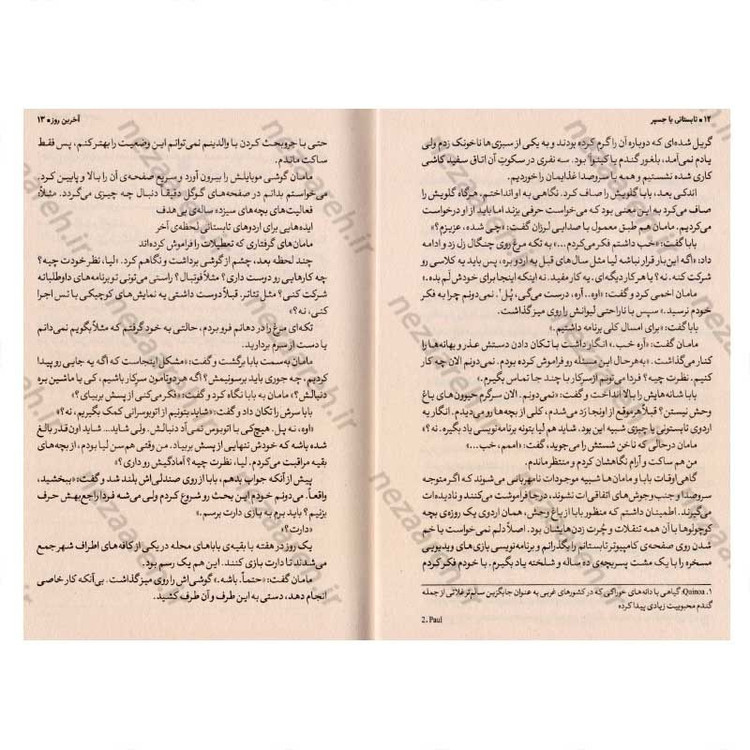 ۱۲ • تابستانی با جسپر
گریل شده‌ای که دوباره آن را گرم کرده بودند و به یکی از سبزی‌ها ناخونک زدم ولی
یادم نمی‌آمد، بلغور گندم یا کینوا¹ بود. سه نفری در سکوتِ آن اتاق سفید کاشی
کاری شده نشستیم و همه با سروصدا غذایمان را خوردیم.
اندکی بعد، بابا گلویش را صاف کرد. نگاهی به او انداختم. هرگاه گلویش را
صاف می‌کرد به این معنی بود که می‌خواست حرفی بزند اما باید از او درخواست
می‌کردیم. مامان هم طبق معمول با صدایی لرزان گفت: «چی شده، عزیزم؟»
بابا گفت: «خب داشتم فکر می‌کردم...» به تکه مرغ روی چنگال زل زد و ادامه
داد: «اگه این بار قرار نباشه لیا مثل سال‌های قبل به اردو بره، پس باید یه کلاسی رو
شرکت کنه. نه؟ یا هر کار دیگه‌ای. یه کار مفید. نه اینکه اینجا برای خودش لَم بده.»
مامان اخمی کرد و گفت: «اوه، آره، درست می‌گی، پُل². نمی‌دونم چرا به فکر
خودم نرسید.» سپس با ناراحتی لیوانش را روی میز گذاشت.
بابا گفت: «برای امسال کلی برنامه داشتیم.»
مامان گفت: «آره خب.» انگار داشت با تکان دادن دستش عذر و بهانه‌ها را
کنار می‌گذاشت. «به‌هرحال این مسئله رو فراموش کرده بودم. نمی‌دونم الان چه کار
کنیم. نظرت چیه؟ فردا می‌تونم از سرکار با چند جا تماس بگیرم.»
بابا شانه‌هایش را بالا انداخت و گفت: «نمی‌دونم. الان سرگرم حیوون‌های باغ
وحش نیستن؟ قبلاً هر موقع از اونجا رد می‌شدم، کلی از بچه‌ها رو می‌دیدم. انگار یه
اردوی تابستونی یا چیزی شبیه این بود. شاید هم لیا بتونه برنامه‌نویسی یاد بگیره. نه؟»
مامان درحالی که ناخن شستش را می‌جوید، گفت: «اممم، خب...»
من هم ساکت و آرام نگاهشان کردم و منتظر ماندم.
گاهی اوقات بابا و مامان‌ها شبیه موجودات نامهربانی می‌شوند که اگر متوجه
سروصدا و جنب‌وجوش‌های اتفاقی‌ات نشوند، درجا فراموشت می‌کنند و نادیده‌ات
می‌گیرند. اطمینان داشتم که منظور بابا از باغ وحش، همان اردوی یک روزه‌ی بچه
کوچولوها با آن همه تنقلات و چُرت زدن‌هایشان بود. اصلاً دلم نمی‌خواست با خم
شدن روی صفحه‌ی کامپیوتر تابستانی را بگذرانم و برنامه‌نویسی بازی‌های ویدیویی
مسخره را با یک مشت پسربچه‌ی ده ساله و شلخته یاد بگیرم. با خودم فکر کردم
۱. Quinoa: گیاهی با دانه‌های خوراکی که در کشورهای غربی به عنوان جایگزین سالم‌تر غلاتی از جمله
گندم محبوبیت زیادی پیدا کرده
2. Paul
آخرین روز • ۱۳
حتی با جروبحث کردن با والدینم نمی‌توانم این وضعیت را بهتر کنم، پس فقط
ساکت ماندم.
مامان گوشی موبایلش را بیرون آورد و سریع صفحه‌ی آن را بالا و پایین کرد.
می‌خواستم بدانم در صفحه‌های گوگل دقیقاً دنبال چه چیزی می‌گردد. مثلاً:
فعالیت‌های بچه‌های سیزده ساله‌ی بی‌هدف
ایده‌هایی برای اردوهای تابستانی لحظه‌ی آخر
مامان‌های گرفتاری که تعطیلات را فراموش کرده‌اند
چند لحظه بعد، چشم از گوشی برداشت و نگاهم کرد. «لیا، نظر خودت چیه؟
چه کارهایی رو دوست داری؟ مثلاً فوتبال؟ راستی می‌تونی تو برنامه‌های داوطلبانه
شرکت کنی؟ مثل تئاتر. قبلاً دوست داشتی یه نمایش‌های کوچیکی با تس اجرا
کنی، نه؟»
تکه‌ای مرغ را در دهانم فرو بردم، حالتی به خود گرفتم که مثلاً بگویم نمی‌دانم
یا دست از سرم بردارید.
مامان به‌سمت بابا برگشت و گفت: «مشکل اینجاست که اگه یه جایی رو پیدا
کردیم، چه جوری باید برسونیمش؟ اگه هر دوتامون سرکار باشیم، کی با ماشین بره
دنبالش؟» مامان به بابا نگاه کرد و گفت: «فکر می‌کنی از پسش بربیای؟»
بابا سرش را تکان داد و گفت: «شاید بتونیم از اتوبوسرانی کمک بگیریم، نه؟»
«اوه، نه پل. هیچ‌کی با اتوبوس نمی‌آد دنبالش. ولی شاید... شاید اون قدر بالغ
شده باشه که خودش تنهایی از پسش بربیاد. من وقتی هم سن لیا بودم، از بچه‌های
بقیه مراقبت می‌کردم. لیا، نظرت چیه؟ آمادگیش رو داری؟»
پیش از آنکه جواب بدهم، بابا از روی صندلی‌اش بلند شد و گفت: «ببخشید،
واقعاً می‌دونم خودم این بحث رو شروع کردم ولی می‌شه فردا راجع‌بهش حرف
بزنیم؟ باید برم به بازی دارت برسم.»
«دارت؟»
یک روز در هفته با بقیه‌ی باباهای محله در یکی از کافه‌های اطراف شهر جمع
می‌شدند تا دارت بازی کنند. این هم یک رسم بود.
مامان گفت: «حتماً. باشه.» گوشی‌اش را روی میز گذاشت. بی‌آنکه کار خاصی
انجام دهد، دستی به این طرف و آن طرف کشید.
nezaareh.ir